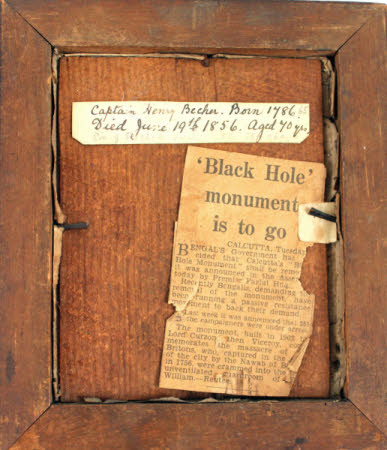 Captain Henry Becher. Born 1786
Died June 19th 1856. Aged 70 yrs
'Black Hole'
monument
is to go
CALCUTTA, Tuesday
BENGAL'S Government has
cided that Calcutta's "B
Hole Monument," shall be remo
it was announced in the Assem
today by Premier Fazlul Huq.
Recently Bengalis, demanding
removal of the monument, have
been running a passive resistance
movement to back their demand.
Last week it was announced that
the campaigners were under
The monument, built in 1902
Lord Curzon, then Viceroy, com
memorates the massacre of
Britons, who, captured in the
of the city by the Nawab of B
in 1756, were crammed into the
unventilated guardroom of
William.—Reuter